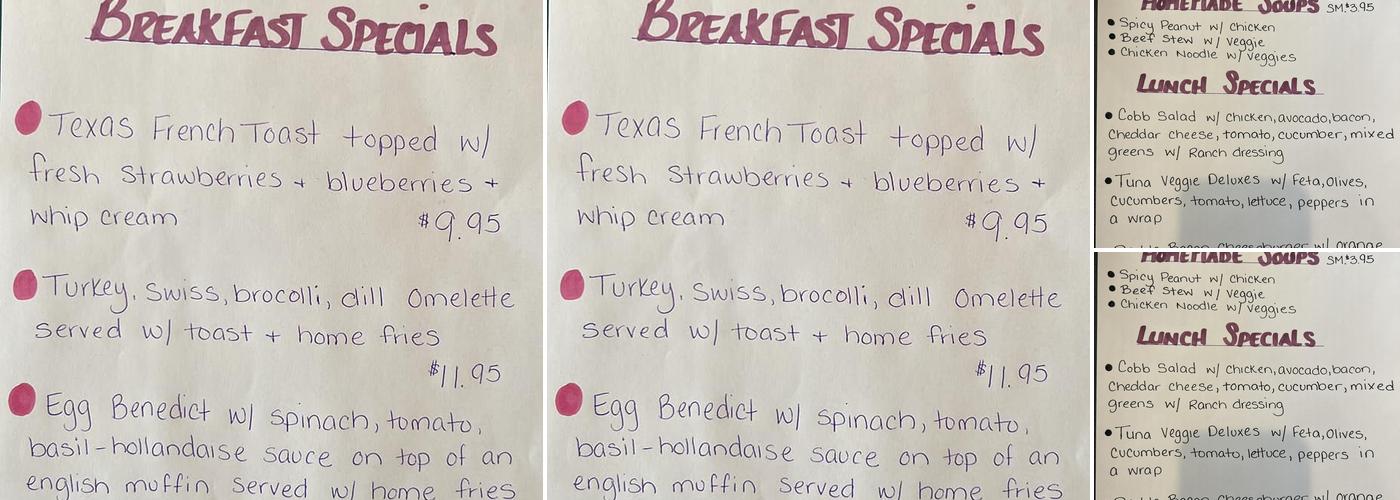 BREAKFAST SPECIALS
Texas French Toast topped w/
fresh strawberries + blueberries +
whip cream $9.95
Turkey, swiss, brocolli, dill Omelette
served w/ toast + home fries
$11.95
Egg Benedict w/ spinach, tomato,
basil-hollandaise sauce on top of an
english muffin served w/ home fries
BREAKFAST SPECIALS
Texas French Toast topped w/
fresh strawberries + blueberries +
whip cream $9.95
Turkey, swiss, brocolli, dill Omelette
served w/ toast + home fries
$11.95
Egg Benedict w/ spinach, tomato,
basil-hollandaise sauce on top of an
english muffin served w/ home fries
HOMEMADE SOUPS SM.$3.95
Spicy Peanut w/ Chicken
Beef Stew w/ Veggie
Chicken Noodle w/ Veggies
LUNCH SPECIALS
Cobb Salad w/ Chicken, avocado, bacon,
Cheddar cheese, tomato, cucumber, mixed
greens w/ Ranch dressing
Tuna Veggie Deluxes w/ Feta, Olives,
Cucumbers, tomato, lettuce, peppers in
a wrap
Bacon Cheeseburger w/ orange
HOMEMADE SOUPS SM.$3.95
Spicy Peanut w/ Chicken
Beef Stew w/ Veggie
Chicken Noodle w/ Veggies
LUNCH SPECIALS
Cobb Salad w/ Chicken, avocado, bacon,
Cheddar cheese, tomato, cucumber, mixed
greens w/ Ranch dressing
Tuna Veggie Deluxes w/ Feta, Olives,
Cucumbers, tomato, lettuce, peppers in
a wrap